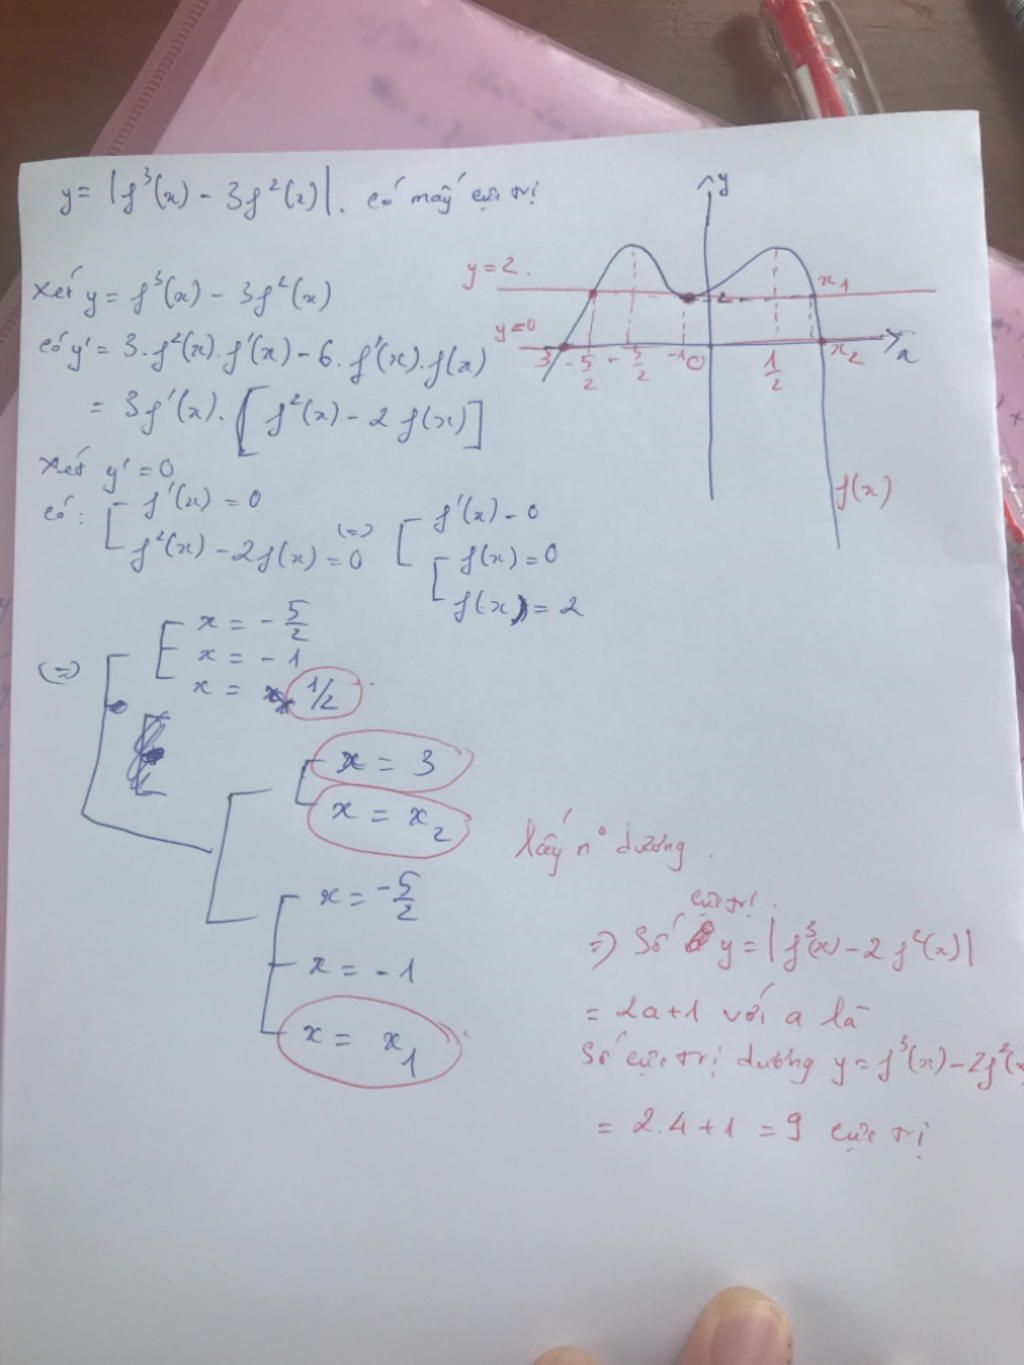 y = |f³(x) - 3f²(x)|. có mấy cực trị
Xét y = f³(x) - 3f²(x)
có y' = 3.f²(x).f'(x) - 6.f'(x).f(x)
= 3f'(x).[f²(x) - 2f(x)]
Xét y' = 0
có: [ f'(x) = 0
f²(x) - 2f(x) = 0 (=) [ f'(x) = 0
[ f(x) = 0
f(x) = 2
(=) [ x = -5/2
x = -1
x = 1/2
[ x = 3
x = x₂
[ x = -5/2
x = -1
x = x₁
y
y=2.
x₁
2
y=0
3
-5/2
-1
O
1/2
x₂
x
f(x)
lấy n° dương.
cực trị.
=) Số y = |f³(x) - 2f²(x)|
= 2a+1 với a là
Số cực trị dương y = f³(x) - 2f²(x
= 2.4+1 = 9 cực trị